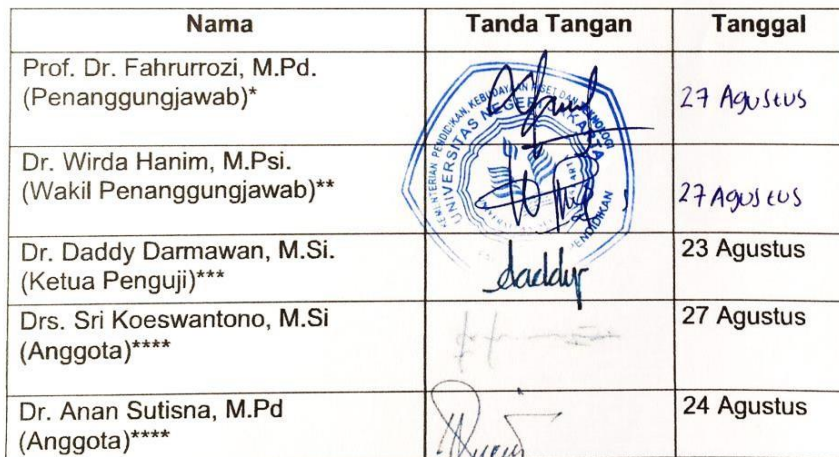 Nama Tanda Tangan Tanggal
Prof. Dr. Fahrurrozi, M.Pd.
(Penanggungjawab)*
27 Agustus
KEMENTERIAN PENDIDIKAN, KEBUDAYAAN RISET DAN TEKNOLOGI
UNIVERSITAS NEGERI JAKARTA
PENDIDIKAN
Dr. Wirda Hanim, M.Psi.
(Wakil Penanggungjawab)**
27 Agustus
Dr. Daddy Darmawan, M.Si.
(Ketua Penguji)***
daddy
23 Agustus
Drs. Sri Koeswantono, M.Si
(Anggota)****
27 Agustus
Dr. Anan Sutisna, M.Pd
(Anggota)****
24 Agustus